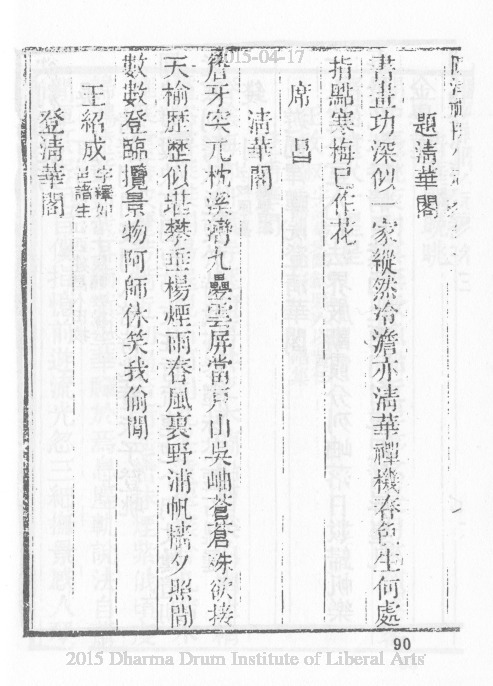 2015-04-17
題淸華閣
書畫功深似一家縱然冷澹亦淸華禪機春色生何處
指點寒梅已作花
席昌
淸華閣
簷牙突兀枕溪灣九疊雲屏當戸山吳岫蒼蒼殊欲接
天榆歷歷似堪攀垂楊煙雨春風裏野浦帆檣夕照間
數數登臨攬景物阿師休笑我偷閒
王紹成字繹如邑諸生
登淸華閣
90
2015 Dharma Drum Institute of Liberal Arts